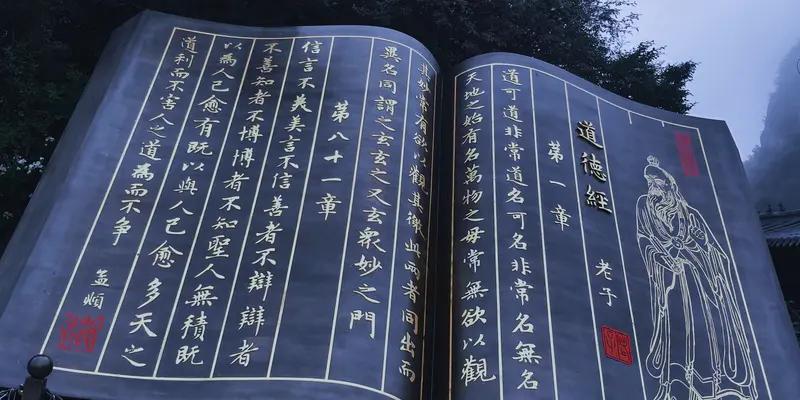 道德經
老子
第一章
道可道非常道名可名非常名無名
天地之始有名萬物之母常無欲以觀
其妙常有欲以觀其徼此兩者同出而
異名同謂之玄玄之又玄衆妙之門
第八十一章
信言不美美言不信善者不辯辯者
不善知者不博博者不知聖人無積既
以為人己愈有既以與人己愈多天之
道利而不害人之道為而不争